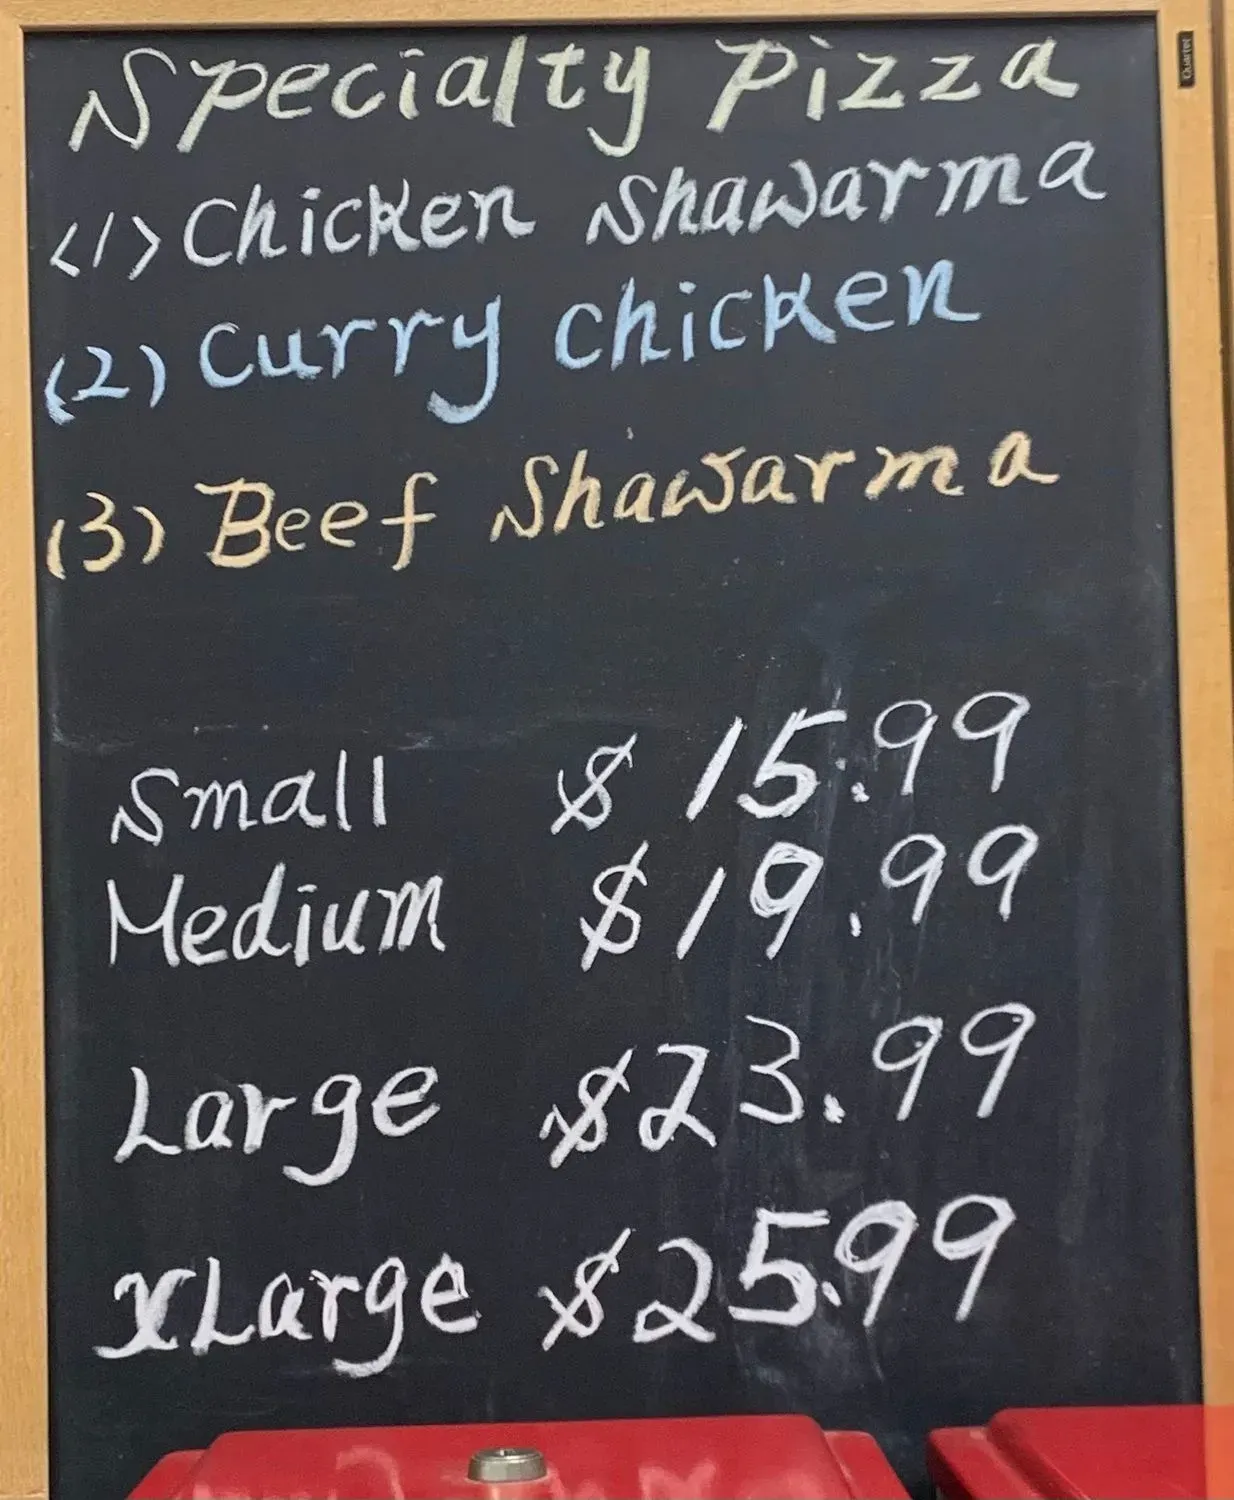 Quartet
Specialty Pizza
<1> Chicken Shawarma
(2) Curry chicken
(3) Beef Shawarma
Small $ 15.99
Medium $19.99
Large $23.99
XLarge $25.99